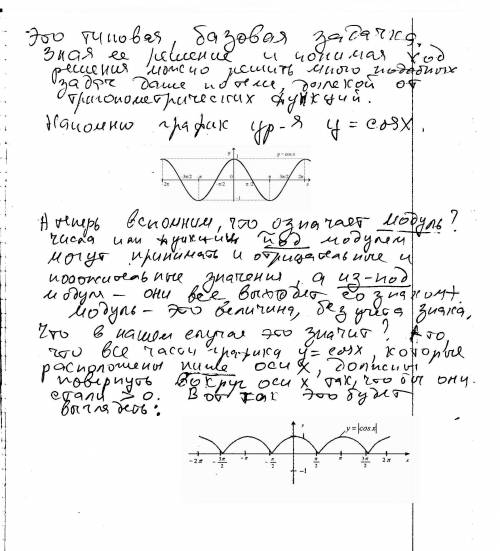 Это типовая, базовая задачка,
зная ее решение и понимая ход
решения можно решить много подобных
задач даже по теме, далекой от
тригонометрических функций.
Напомню график ур-я y = cosx.
y
y = cos x
1
-2π 3π/2 -π π/2 0 π/2 π 3π/2 2π x
-1
А теперь вспомним, что означает модуль?
числа или функции под модулем
могут принимать и отрицательные и
положительные значения, а из-под
модуля - они все выходят со знаком +
модуль - это величина, без учета знака,
Что в нашем случае это значит? А то,
что все части графика y = cosx, которые
расположены ниже оси x, должны
повернуть вокруг оси x так, что бы они
стали > 0. Вот так это будет
выглядеть:
1
y = |cos x|
-2π -3π/2 -π -π/2 π/2 π 3π/2 2π x
-1